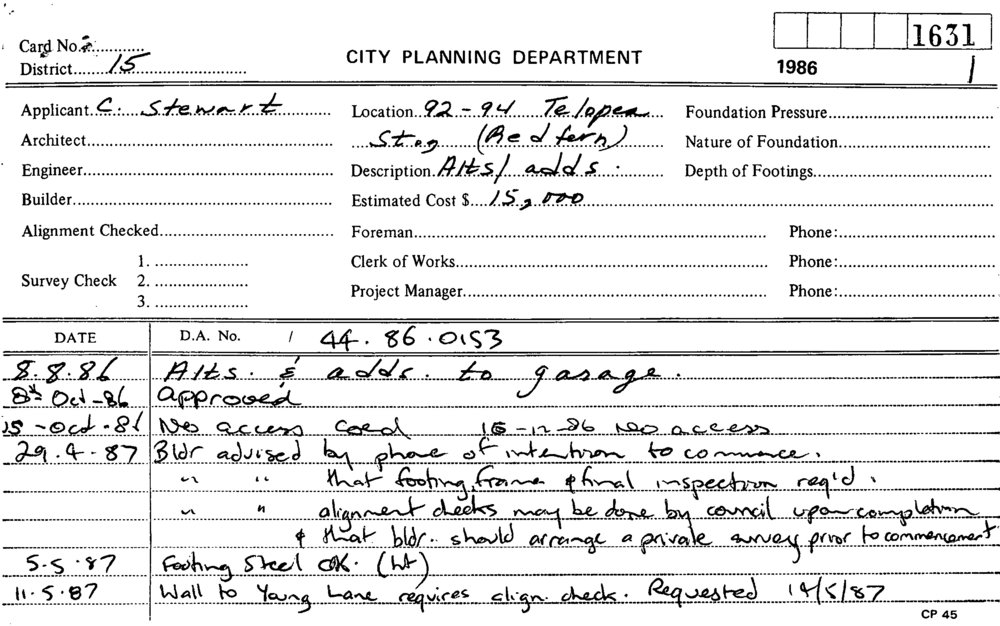 1631
Card No.
District 15
CITY PLANNING DEPARTMENT
1986 1
Applicant C. Stewart
Location 92-94 Telopea
Foundation Pressure
Architect
St.  (Redfern)
Nature of Foundation
Engineer
Description Alts/ adds.
Depth of Footings
Builder
Estimated Cost $ 15,000
Alignment Checked
Foreman
Phone:
Survey Check 1.
2.
3.
Clerk of Works
Phone:
Project Manager
Phone:
DATE D.A. No. / 44.86.0153
8.8.86 Alts. & adds. to garage.
8th Oct-86 approved
15-Oct-86 No access Coed 15-12-86 No access
29.4.87 Bldr advised by phone of intention to commence.
" " that footing, frame & final inspection req'd.
" " alignment checks may be done by council upon completion
& that bldr. should arrange a private survey prior to commencement
5.5.87 Footing Steel OK.
11.5.87 Wall to Young Lane requires align. check. Requested 14/5/87
CP 45